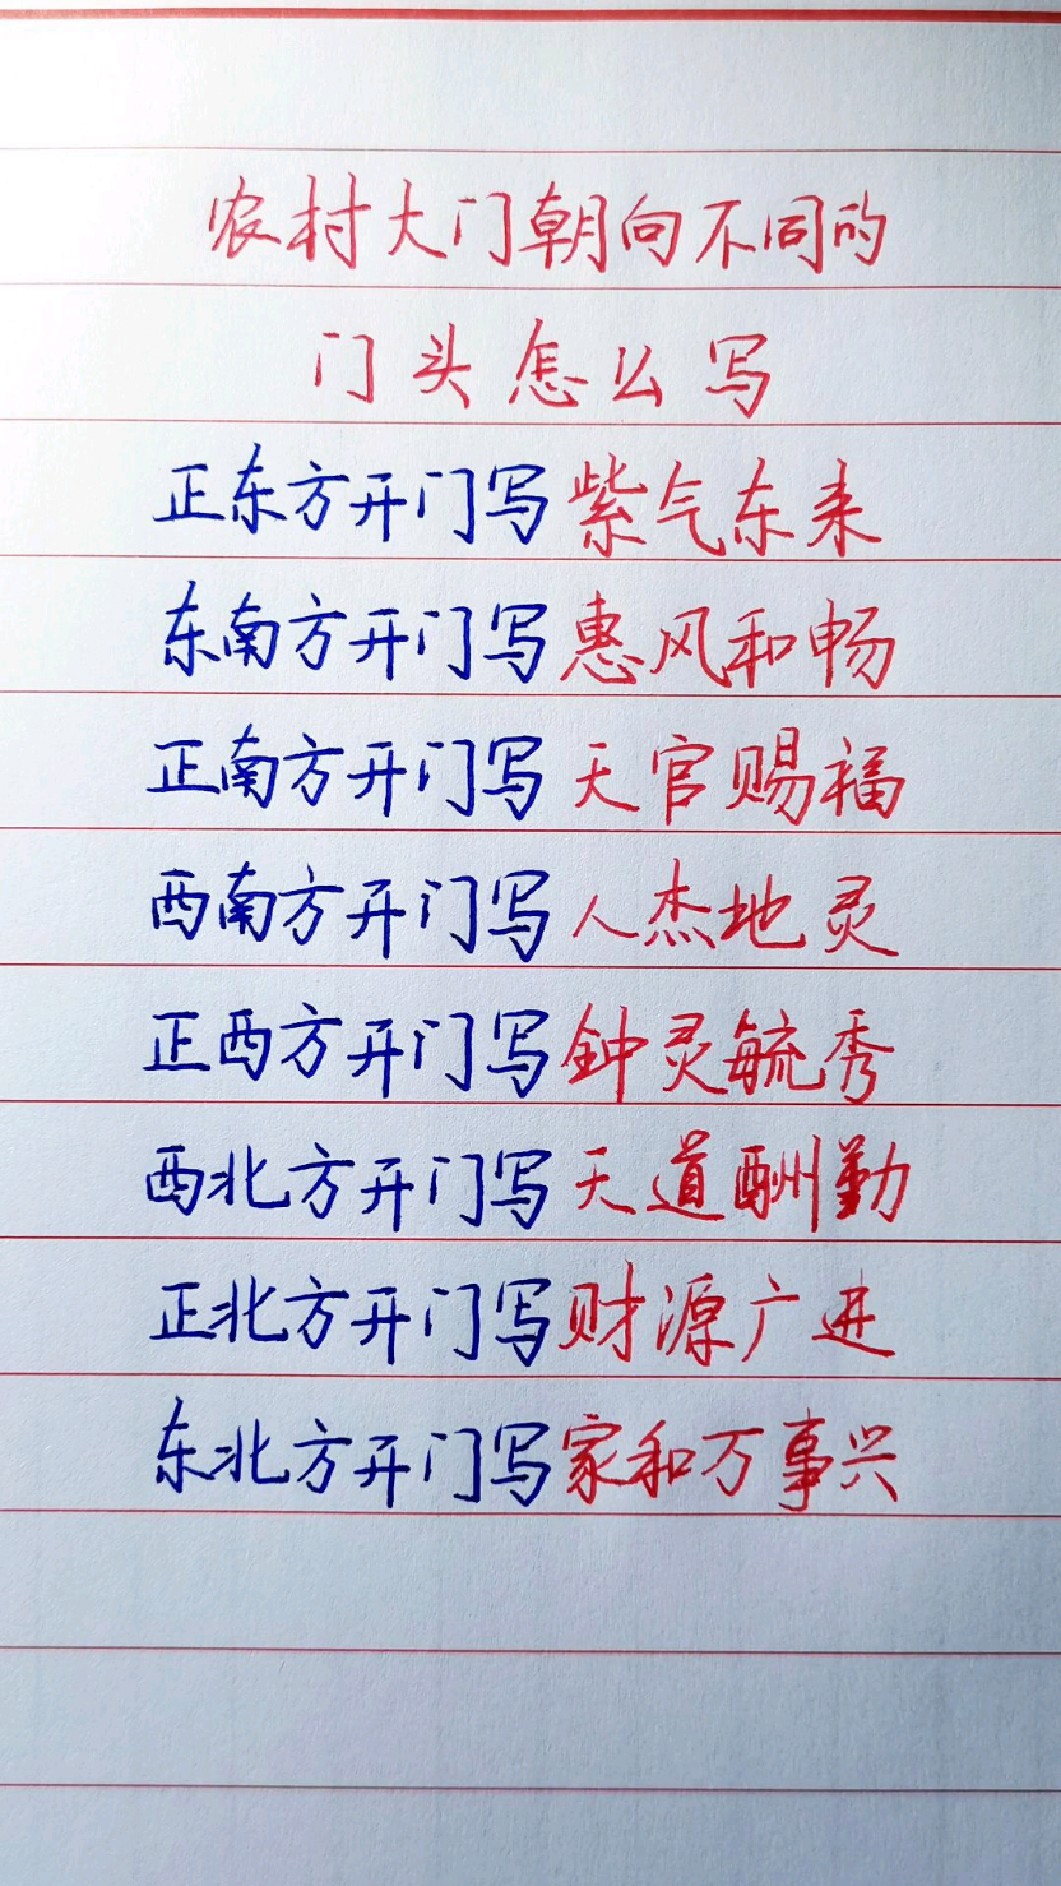 农村大门朝向不同的
门头怎么写
正东方开门写紫气东来
东南方开门写惠风和畅
正南方开门写天官赐福
西南方开门写人杰地灵
正西方开门写钟灵毓秀
西北方开门写天道酬勤
正北方开门写财源广进
东北方开门写家和万事兴